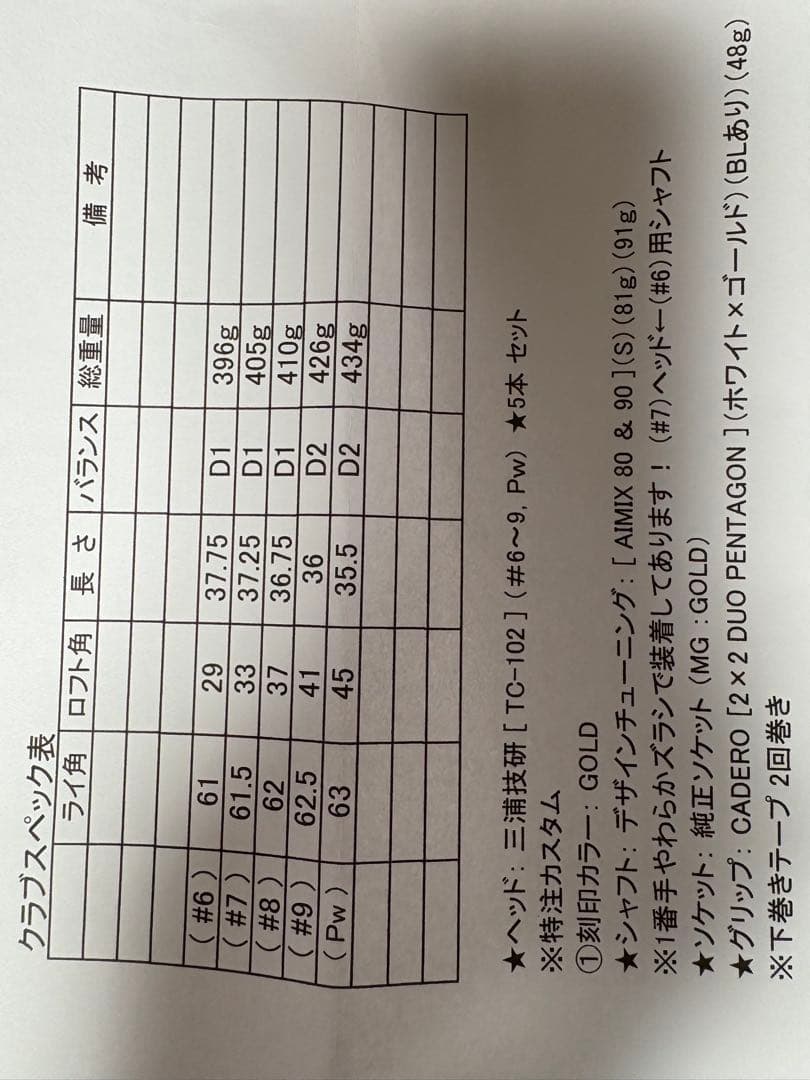 クラブスペック表
ライ角 ロフト角 長さ バランス 総重量 備考
(#6) 61 29 37.75 D1 396g
(#7) 61.5 33 37.25 D1 405g
(#8) 62 37 36.75 D1 410g
(#9) 62.5 41 36 D2 426g
(Pw) 63 45 35.5 D2 434g
★ヘッド: 三浦技研 [ TC-102 ] (#6~9, Pw) ★5本 セット
※特注カスタム
①刻印カラー: GOLD
★シャフト: デザインチューニング: [ AIMIX 80 & 90 ](S)(81g)(91g)
※1番手 やわらかズラシで装着してあります! (#7)ヘッド←(#6)用シャフト
★ソケット: 純正ソケット (MG :GOLD)
★グリップ: CADERO [2×2 DUO PENTAGON ](ホワイト×ゴールド)(BLあり)(48g)
※下巻きテープ 2回巻き